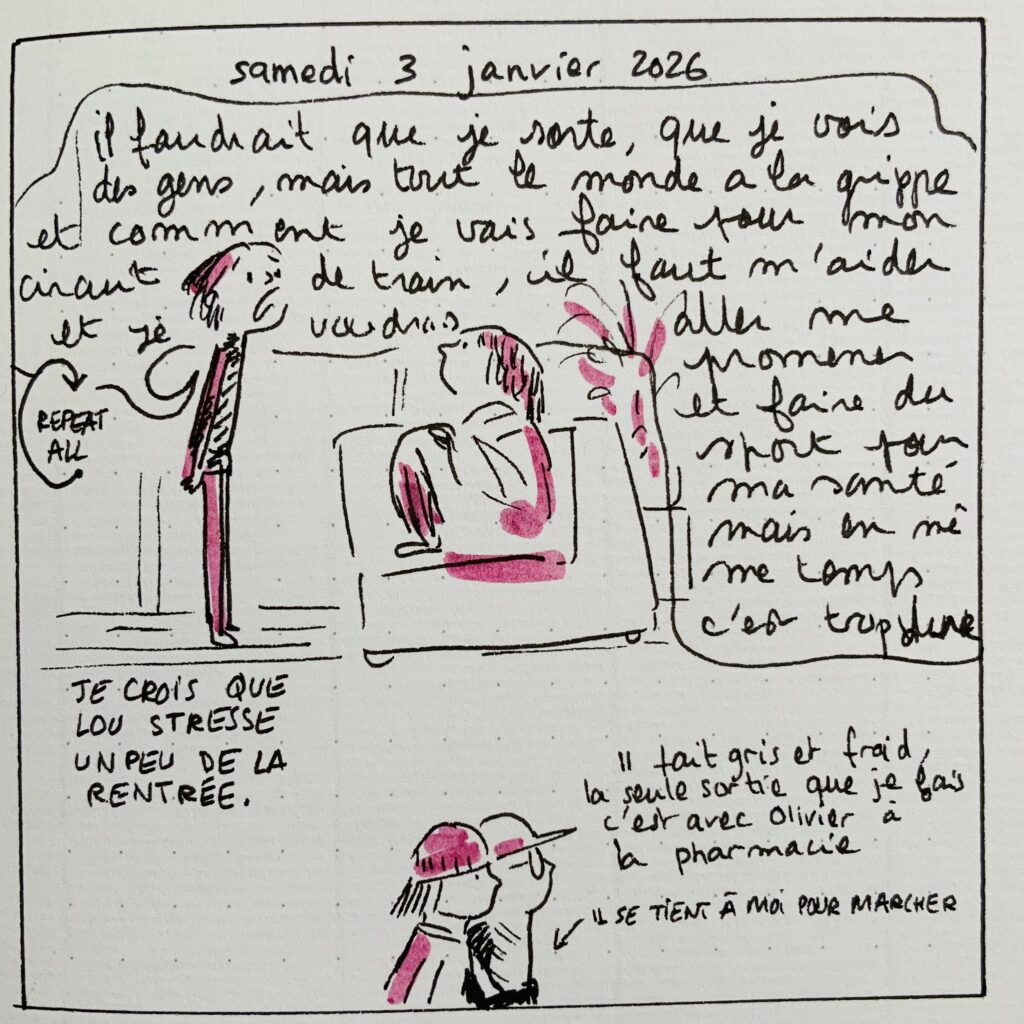 samedi 3 janvier 2026
il faudrait que je sorte, que je vois
des gens, mais tout le monde a la grippe
et comment je vais faire pour mon
circuit de train, il faut m'aider
et je voudrais aller me
promener
et faire du
sport pour
ma santé
mais en mê
me temps
c'est trop dur
REPEAT
ALL
JE CROIS QUE
LOU STRESSE
UN PEU DE LA
RENTRÉE.
Il fait gris et froid,
la seule sortie que je fais
c'est avec Olivier à
la pharmacie
IL SE TIENT À MOI POUR MARCHER